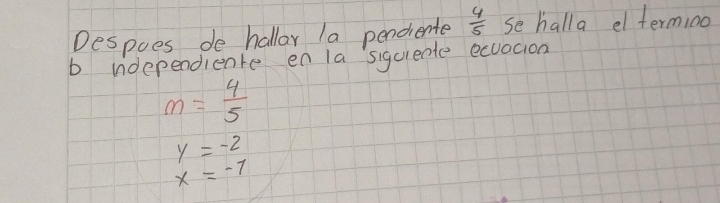 Despues de hallar la pendiente 4/5 se halla el termino
b independiente en la siguiente ecuacion
m = 4/5
y = -2
x = -7